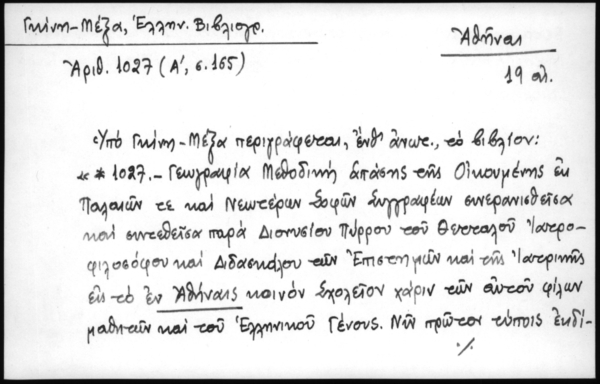 Γκίνη-Μέξα, Ἑλλην. Βιβλιογρ.
Ἀθῆναι
Ἀριθ. 1027 (Α', σ. 165)
19 αἰ.
Ὑπό Γκίνη-Μέξα περιγράφεται, ἔνθ' ἀνωτ., τό βιβλίον:
«* 1027.- Γεωγραφία Μεθοδική ἁπάσης τῆς Οἰκουμένης ἐκ
Παλαιῶν τε καί Νεωτέρων Σοφῶν Συγγραφέων συνερανισθεῖσα
καί συντεθεῖσα παρά Διονυσίου Πύρρου τοῦ Θετταλοῦ Ἰατρο-
φιλοσόφου καί Διδασκάλου τῶν Ἐπιστημῶν καί τῆς Ἰατρικῆς
εἰς τό ἐν Ἀθήναις κοινόν Σχολεῖον χάριν τῶν αὐτοῦ φίλων
μαθητῶν καί τοῦ Ἑλληνικοῦ Γένους. Νῦν πρῶτον τύποις ἐκδί-
·/.